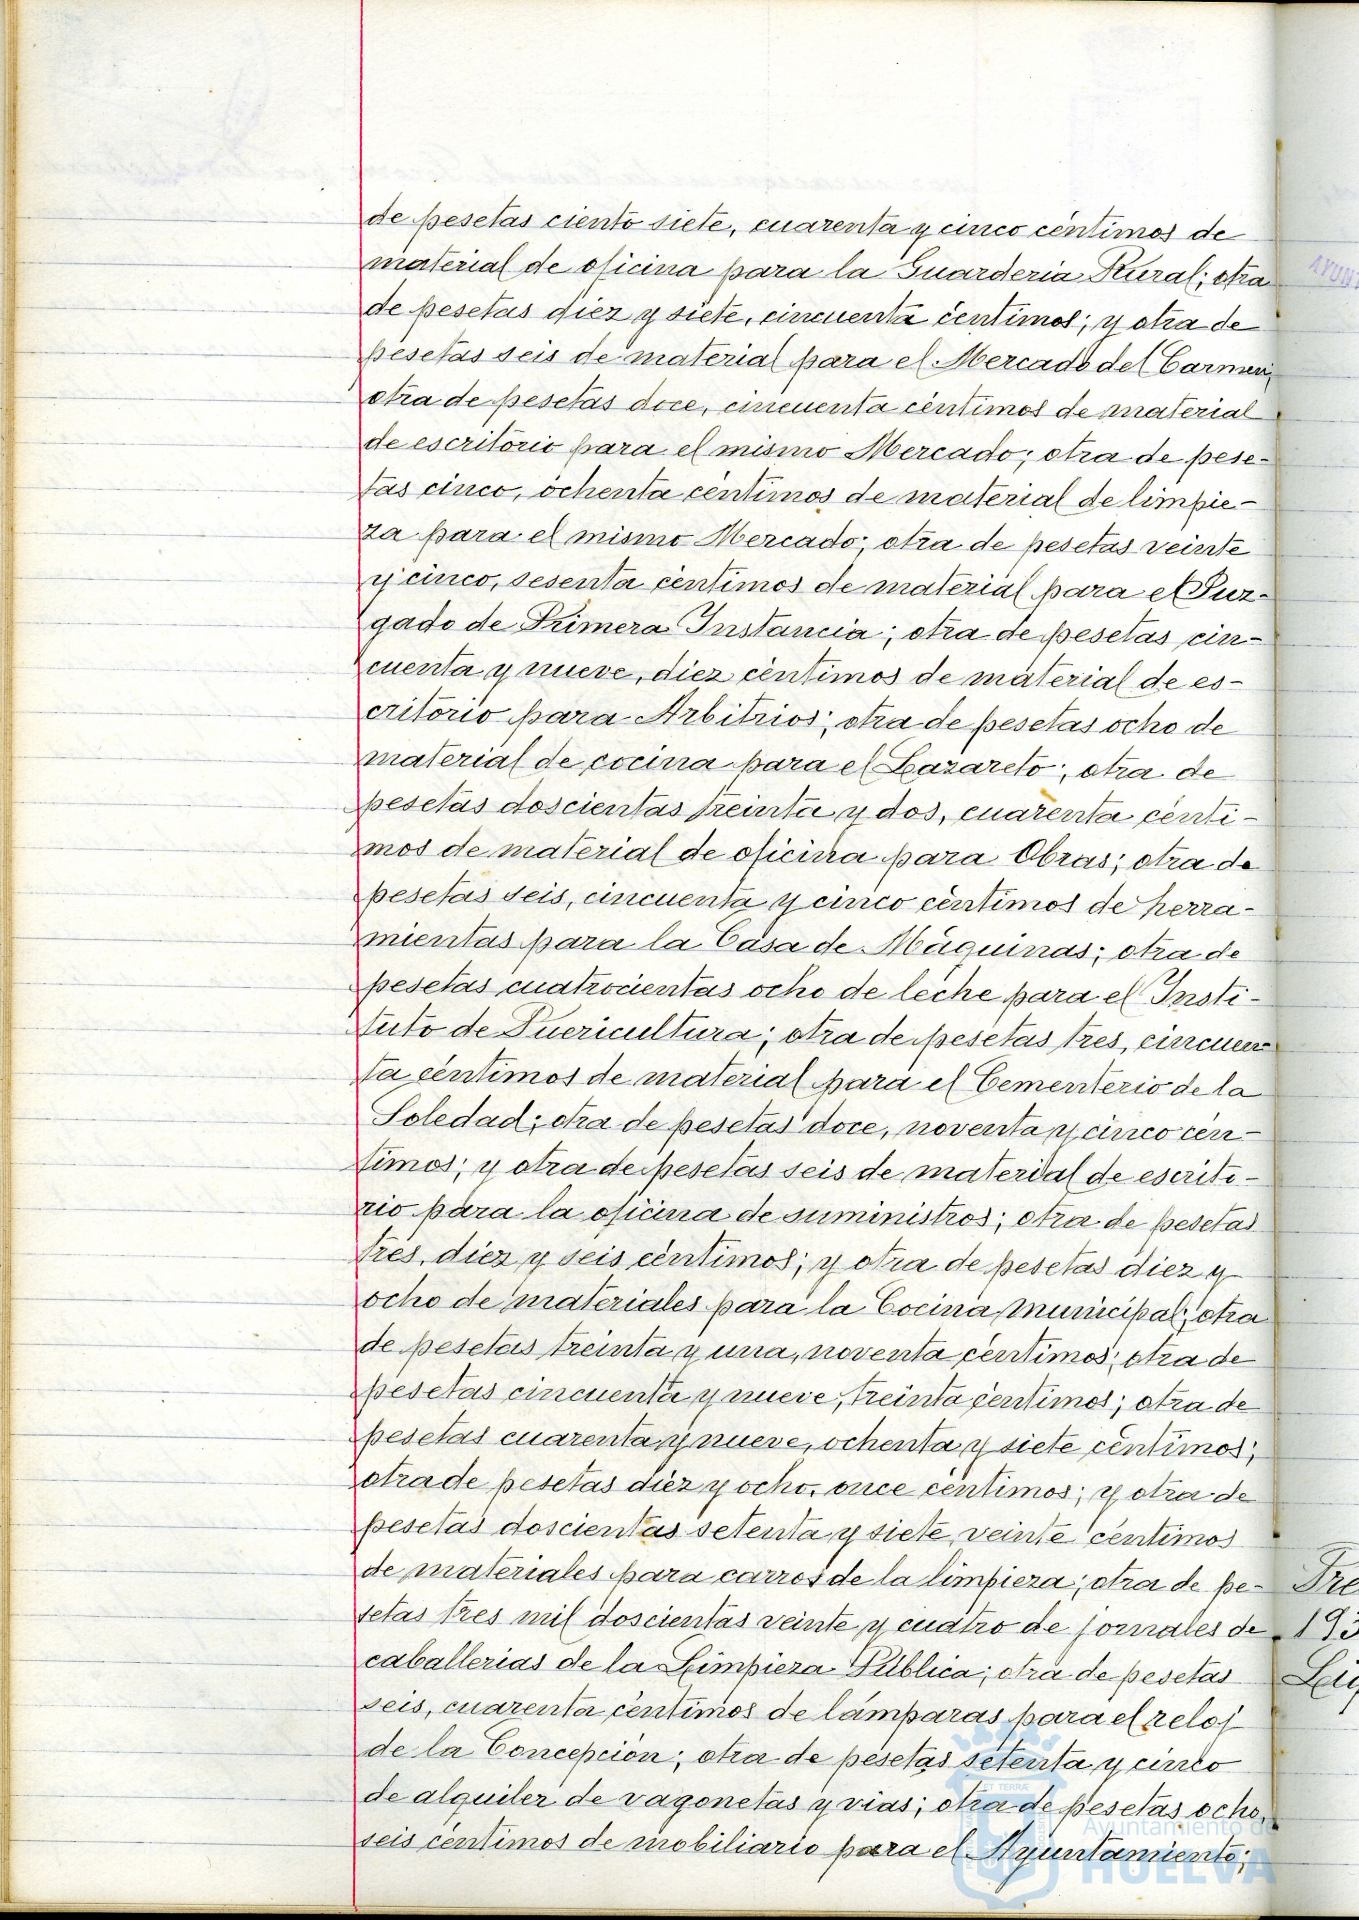 de pesetas ciento siete, cuarenta y cinco céntimos de
material de oficina para la Guarderia Rural; otra
de pesetas diez y siete, cincuenta céntimos; y otra de
pesetas seis de material para el Mercado del Carmen;
otra de pesetas doce, cincuenta céntimos de material
de escritorio para el mismo Mercado; otra de pese-
tas cinco, ochenta céntimos de material de limpie-
za para el mismo Mercado; otra de pesetas veinte
y cinco, sesenta céntimos de material para el Juz-
gado de Primera Instancia; otra de pesetas cin-
cuenta y nueve, diez céntimos de material de es-
critorio para Arbitrios; otra de pesetas ocho de
material de cocina para el Lazareto; otra de
pesetas doscientas treinta y dos, cuarenta cénti-
mos de material de oficina para Obras; otra de
pesetas seis, cincuenta y cinco céntimos de herra-
mientas para la Casa de Máquinas; otra de
pesetas cuatrocientas ocho de leche para el Insti-
tuto de Puericultura; otra de pesetas tres, cincuen-
ta céntimos de material para el Cementerio de la
Soledad; otra de pesetas doce, noventa y cinco cén-
timos; y otra de pesetas seis de material de escrito-
rio para la oficina de suministros; otra de pesetas
tres, diez y seis céntimos; y otra de pesetas diez y
ocho de materiales para la Cocina Municipal; otra
de pesetas treinta y una, noventa céntimos; otra de
pesetas cincuenta y nueve, treinta céntimos; otra de
pesetas cuarenta y nueve, ochenta y siete céntimos;
otra de pesetas diez y ocho, once céntimos; y otra de
pesetas doscientas setenta y siete, veinte céntimos
de materiales para carros de la limpieza; otra de pe-
setas tres mil doscientas veinte y cuatro de jornales de
caballerias de la Limpieza Pública; otra de pesetas
seis, cuarenta céntimos de lámparas para el reloj
de la Concepción; otra de pesetas setenta y cinco
de alquiler de vagonetas y vias; otra de pesetas ocho,
seis céntimos de mobiliario para el Ayuntamiento;
Ayuntamiento de
HUELVA